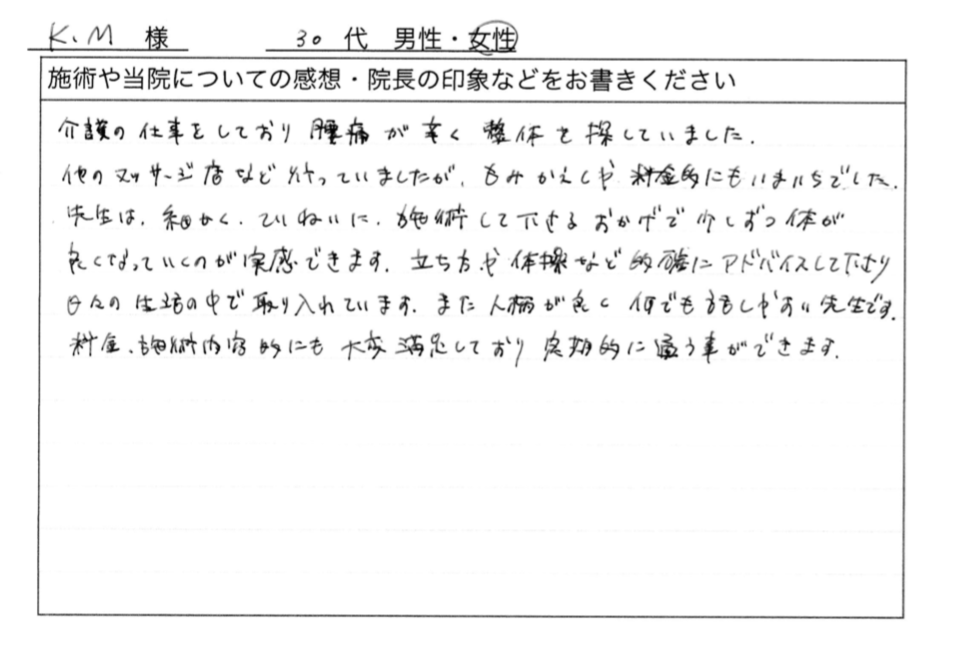 K.M 様 30 代 男性・女性
施術や当院についての感想・院長の印象などをお書きください
介護の仕事をしており腰痛が辛く整体を探していました。
他のマッサージ店など行っていましたが、もみかえしや料金的にもいまいちでした。
先生は、細かく、ていねいに、施術して下さるおかげで少しずつ体が
良くなっていくのが実感できます。立ち方や体操など的確にアドバイスして下さり
日々の生活の中で取り入れています。また人柄が良く何でも話しやすい先生です。
料金、施術内容的にも大変満足しており定期的に通う事ができます。